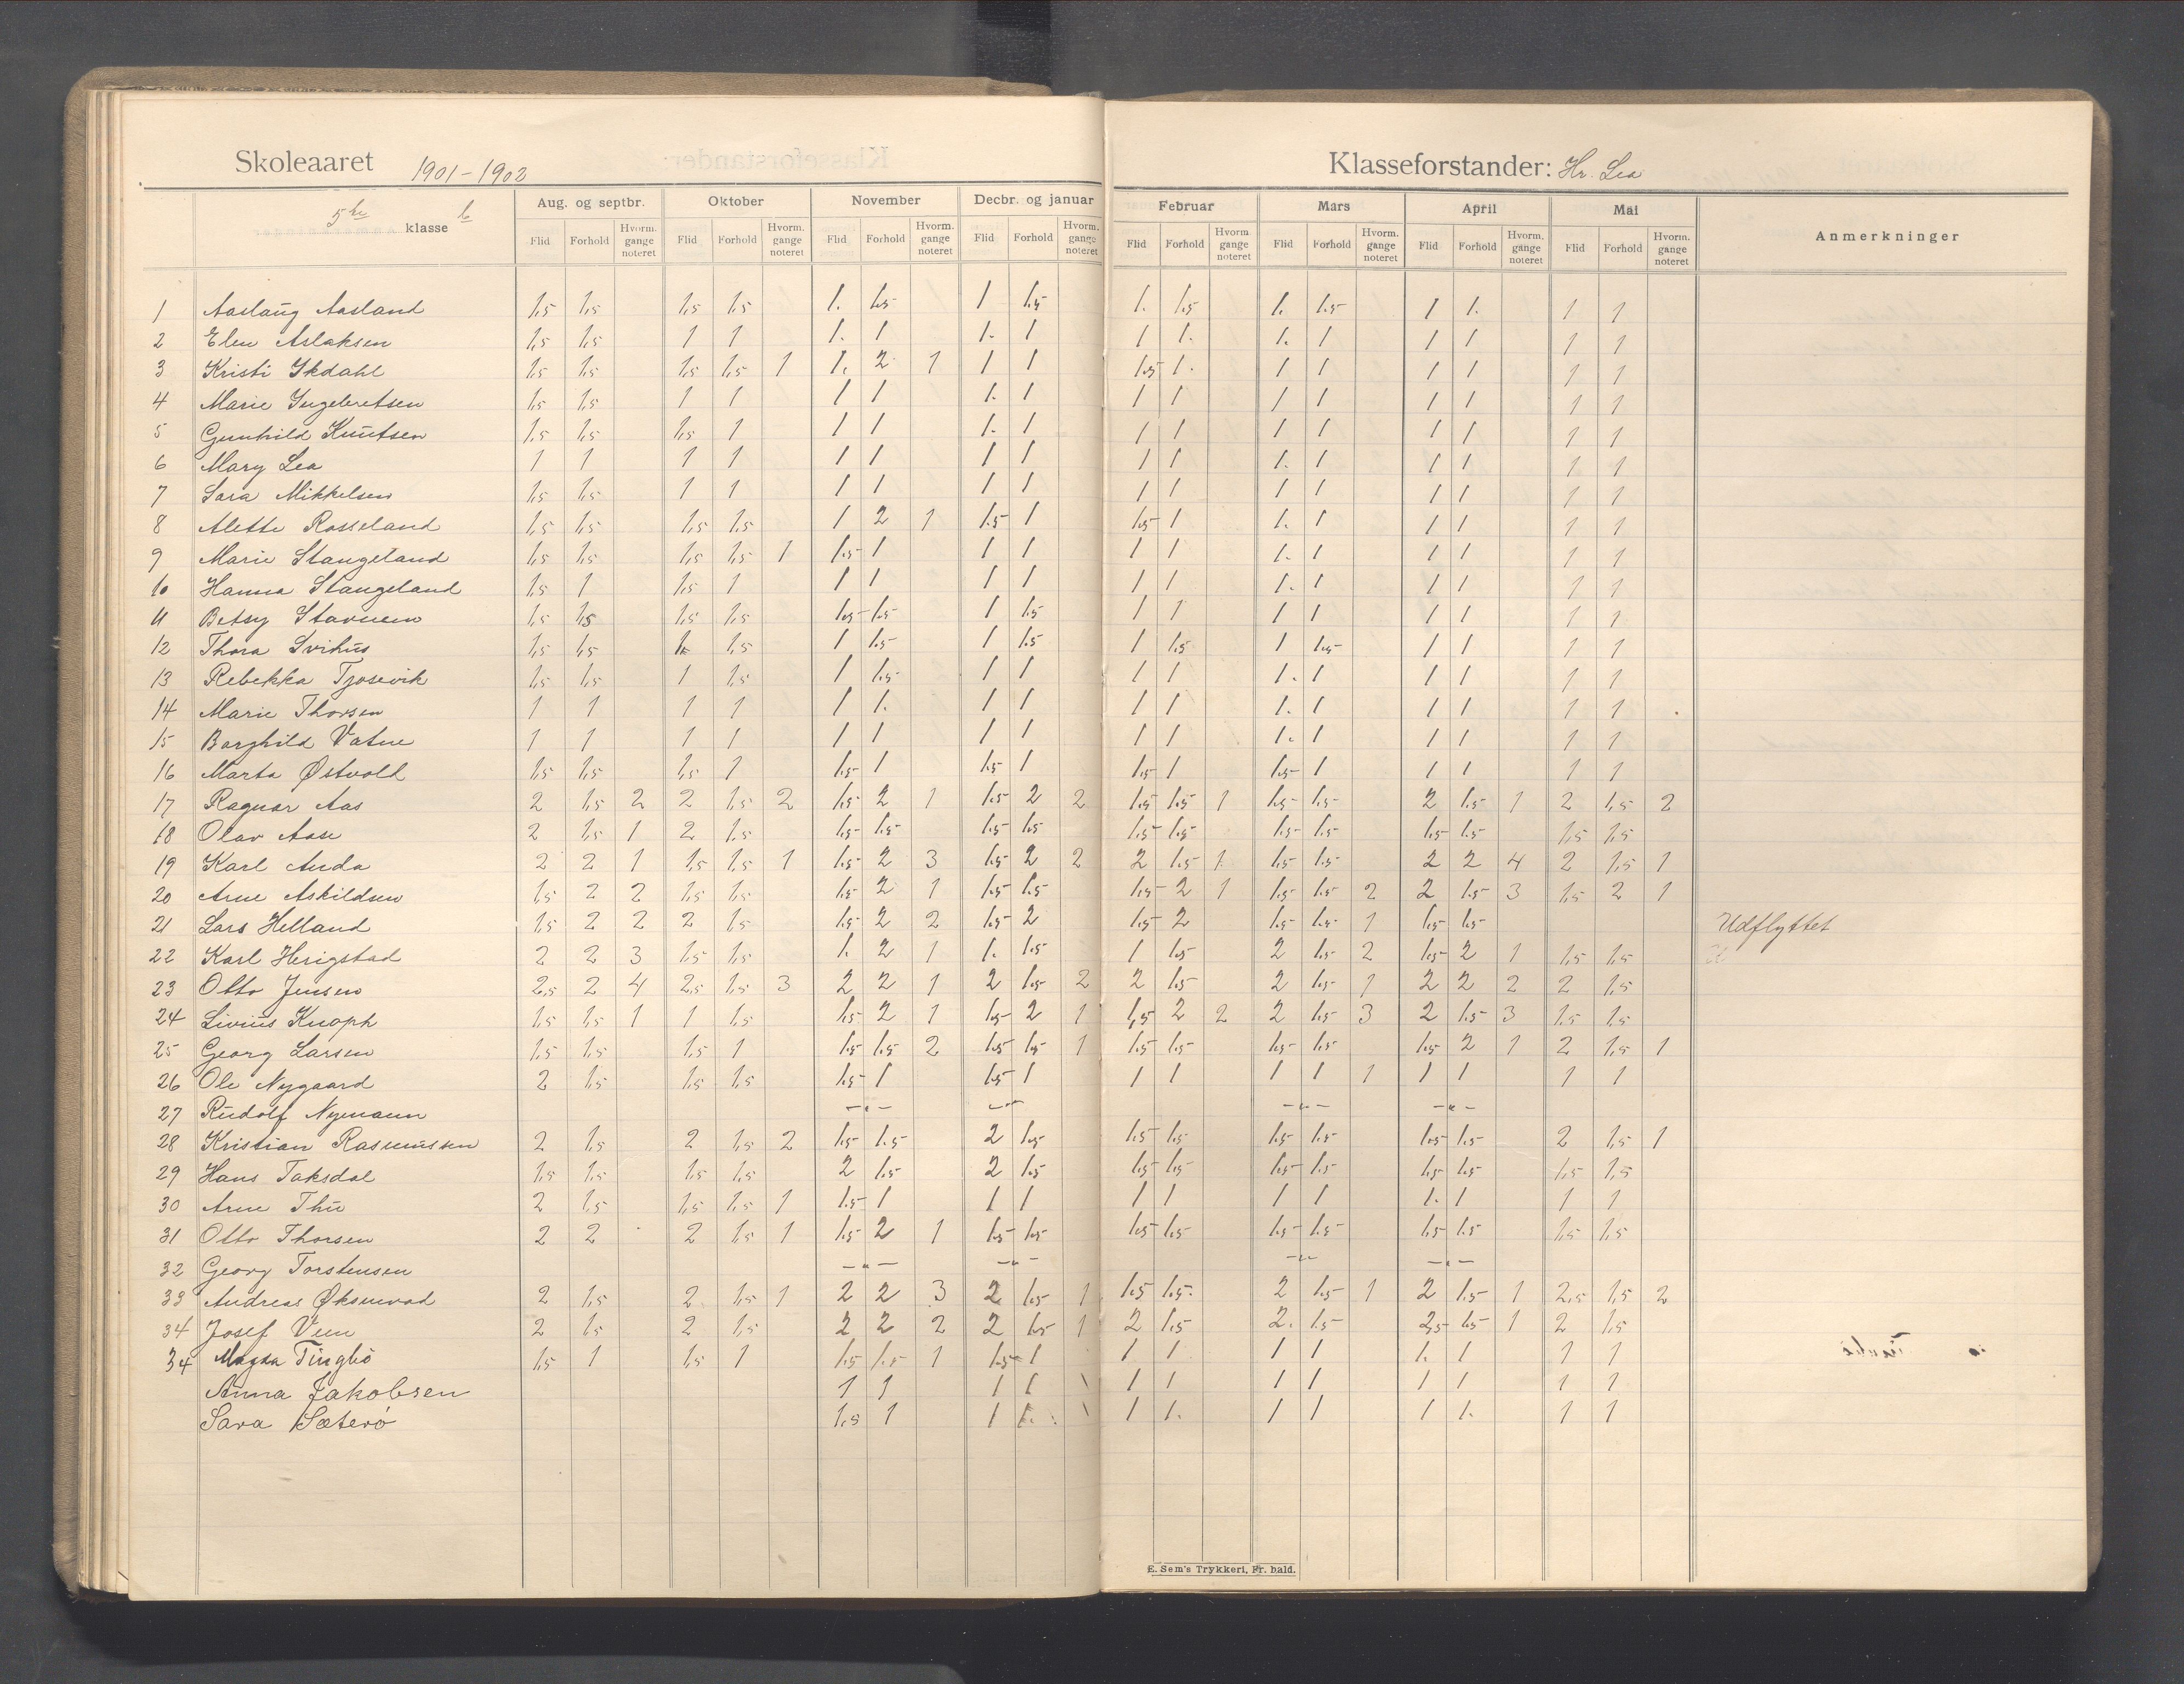 Skoleaaret 1901-1902
Klasseforstander: Hr. Lea
5te klasse b
Aug. og septbr. Oktober November Decbr. og januar Februar Mars April Mai Anmerkninger
Flid Forhold Hvorm. gange noteret Flid Forhold Hvorm. gange noteret Flid Forhold Hvorm. gange noteret Flid Forhold Hvorm. gange noteret Flid Forhold Hvorm. gange noteret Flid Forhold Hvorm. gange noteret Flid Forhold Hvorm. gange noteret Flid Forhold Hvorm. gange noteret
1 Aaslaug Aasland 1,5 1,5 1,5 1,5 1. 1.5 1 1.5 1. 1.5 1. 1.5 1 1. 1 1
2 Elen Aslaksen 1,5 1,5 1 1 1. 1 1. 1 1 1. 1. 1 1 1 1 1
3 Kristi Ikdahl 1,5 1,5 1,5 1,5 1 1. 2 1 1 1 1.5 1. 1 1 1 1 1 1
4 Marie Ingebretsen 1,5 1,5 1 1 1 1 1. 1 1 1 1 1 1 1 1 1
5 Gunhild Knutsen 1,5 1,5 1,5 1 1 1 1. 1 1 1 1 1 1 1 1 1
6 Mary Lea 1 1 1 1 1 1 1 1 1 1 1. 1 1 1 1 1
7 Sara Mikkelsen 1,5 1,5 1 1 1 1 1 1 1 1 1 1 1 1 1 1
8 Alette Rosseland 1,5 1,5 1,5 1,5 1 2 1 1.5 1 1.5 1 1. 1 1 1 1 1
9 Marie Stangeland 1,5 1,5 1,5 1,5 1 1.5 1 1 1 1 1 1. 1 1 1 1 1
10 Hanna Stangeland 1,5 1 1,5 1 1 1 1 1 1 1 1. 1 1 1 1 1
11 Betsy Stavnem 1,5 1,5 1,5 1,5 1.5 1.5 1 1.5 1 1 1 1 1 1 1 1
12 Thora Svihus 1,5 1,5 1,5 1 1.5 1 1.5 1 1.5 1 1.5 1 1 1 1
13 Rebekka Tjosevik 1,5 1,5 1 1,5 1 1.5 1 1 1 1 1. 1 1 1 1 1
14 Marie Thorsen 1 1 1 1 1 1. 1 1 1 1 1. 1 1 1 1 1
15 Borghild Vatne 1 1 1 1 1 1 1 1 1 1 1. 1 1 1 1 1
16 Marta Østvold 1,5 1,5 1,5 1 1.5 1 1.5 1 1.5 1 1.5 1 1 1 1 1
17 Ragnar Aas 2 1,5 2 2 1,5 2 1.5 2 1 1.5 2 2 1.5 1.5 1 1.5 1.5 2 1.5 1 2 1,5 2
18 Olav Aase 2 1,5 1 2 1,5 1.5 1.5 1.5 1.5 1.5 1.5 1.5 1.5 1.5 1.5 1,5 1,5
19 Karl Anda 2 2 1 1,5 1,5 1 1.5 2 3 1.5 2 2 2 1.5 1 1.5 1.5 2 2 4 2 1,5 1
20 Arne Askildsen 1,5 2 2 1,5 1,5 1.5 2 1 1.5 1.5 1.5 2 1 1.5 1.5 2 2 1.5 3 1,5 2 1
21 Lars Helland 1,5 2 2 2 1,5 1.5 2 2 1.5 2 1.5 2 1.5 1.5 1 1.5 1.5 Udflyttet
22 Karl Herigstad 2 2 3 1,5 1,5 1. 2 1 1. 1.5 1 1.5 2 1.5 2 1.5 2 1 1,5 1,5
23 Otto Jensen 2,5 2 4 2,5 1,5 3 2 2 1 2 1.5 2 2 1.5 2 1.5 1 2 2 2 2 1,5
24 Livius Knoph 1,5 1,5 1 1 1,5 1.5 2 1 1.5 2 1 1,5 2 2 2 1.5 3 2 1.5 3 1,5 1,5
25 Georg Larsen 1,5 1,5 1,5 1 1.5 1.5 2 1.5 1.5 1 1.5 1.5 1.5 1.5 1.5 2 1 2 1,5 1
26 Ole Nygaard 2 1,5 1,5 1,5 1.5 1 1.5 1 1 1 1 1 1 1 1 1 1
27 Rudolf Nymann -"- -"- -"- -"-
28 Kristian Rasmussen 2 1,5 2 1,5 2 1.5 1.5 2 1.5 1.5 1.5 1.5 1.5 1.5 1.5 2 1,5 1
29 Hans Taksdal 1,5 1,5 1,5 1,5 2 1.5 2 1.5 1.5 1.5 1.5 1.5 1.5 1.5 1,5 1,5
30 Arne Thu 2 1,5 1,5 1,5 1 1.5 1 1 1 1 1 1 1 1. 1 1 1
31 Otto Thorsen 2 2 2 1,5 1 1.5 2 1 1.5 1.5 1.5 1.5 1.5 1.5 1.5 1.5 1,5 1,5
32 Georg Torstensen -"- -"- -"- -"-
33 Andreas Øksnevad 2 1,5 2 1,5 1 2 2 3 2 1.5 1 1.5 1.5 2 1.5 1 2 1.5 1 2,5 1,5 2
34 Josef Veen 2 1,5 2 1,5 2 2 2 2 1.5 1 2 1.5 2. 1.5 2,5 1.5 1 2 1,5
34 Magda Tingbø 1,5 1 1,5 1 1.5 1.5 1 1.5 1 1 1 1 1 1. 1 1 1
Anna Jakobsen 1 1 1 1 1 1 1 1 1 1 1 1
Sara Sæterø 1,5 1 1 1. 1 1. 1 1 1 1. 1 1
E. Sem's Trykkeri, Fr. hald.